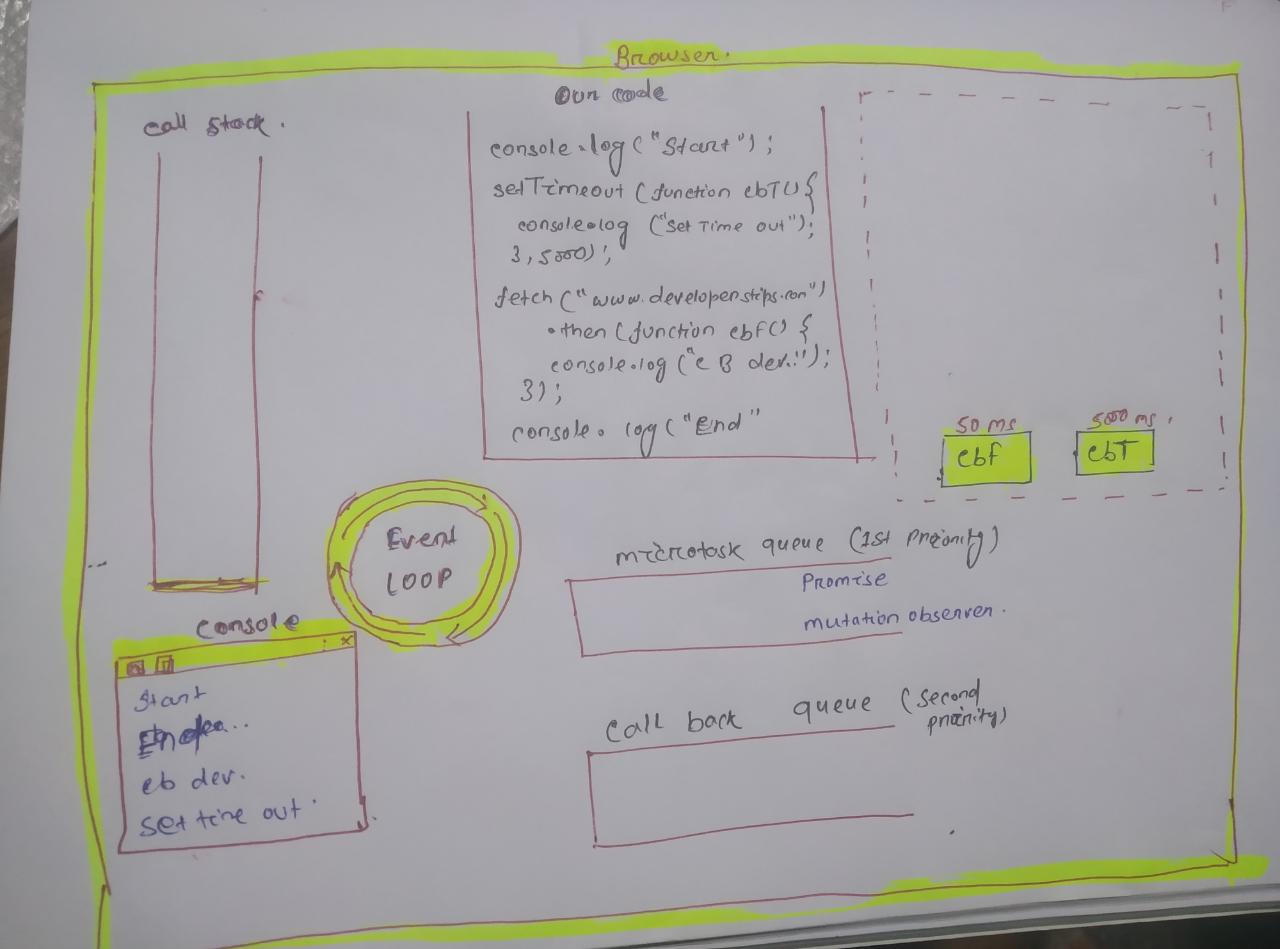 Browser.
call stack.
Our code
console.log("Start");
setTimeout (function cbT(){
console.log ("Set Time out");
},5000);
fetch ("www.developerstips.com")
.then (function cbf() {
console.log ("c B dev.");
});
console. log ("End"
50 ms
5000 ms.
cbf
cbT
Event
LOOP
microtask queue (1st Priority)
Promise
mutation observer.
Console
x
Start
cb dev.
Set time out.
call back queue (second
priority)